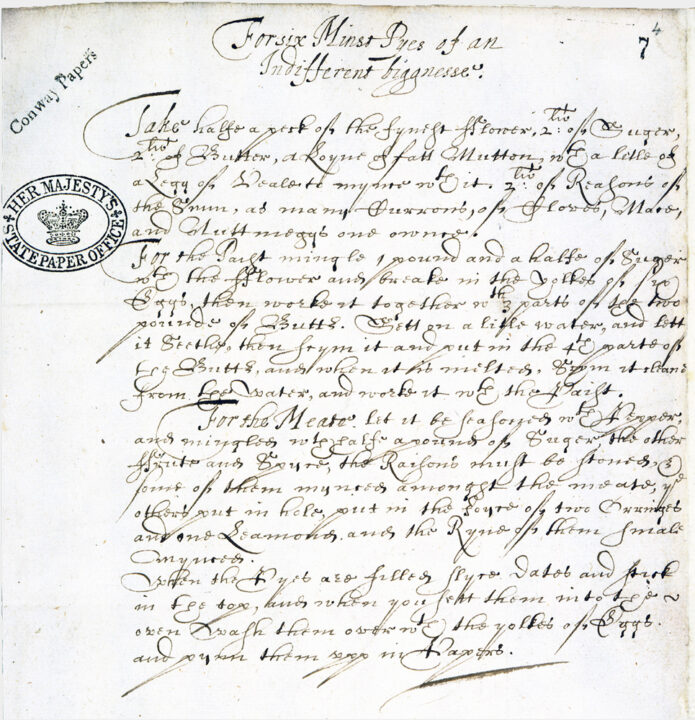 For six Minst Pyes of an
Indifferent biggnesse.
7
4
Conway Papers
HER MAJESTY'S STATE PAPER OFFICE
Take halfe a peck of the fynest fflower, 2:li of Suger,
2:li of Butter, a Loyne of fatt Mutton, wth a litle of
a Legg of Veale to mynce wth it. 2:li of Reasons of
the Sunn, as many Currons, of Cloves, Mace,
and Nuttmeggs one ownce.
For the Paist mingle 1 pound and a halfe of Suger
wth the fflower and breake in the yolkes of six
Eggs, then worke it together wth 3 parts of the two
pounds of Butter. Sett on a litle water, and lett
it Seethe, then scym it and put in the 4th parte of
the Butter, and when it is melted, Scym it cleane
from the water, and worke it wth the Paist.
For the Meate. let it be seasoned wth Pepper,
and mingled wth halfe a pound of Suger the other
ffrute and Spyce, the Raisons must be stoned, &
some of them mynced amongst the meate, ye
others put in hole, put in the Joyce of two Orringes
and one Leamond, and the Ryne of them smale
mynced.
When the Pyes are filled slyce dates and stick
in the top, and when you sett them into the
oven Wash them over wth the yolkes of Eggs.
and pynn them upp in Papers.